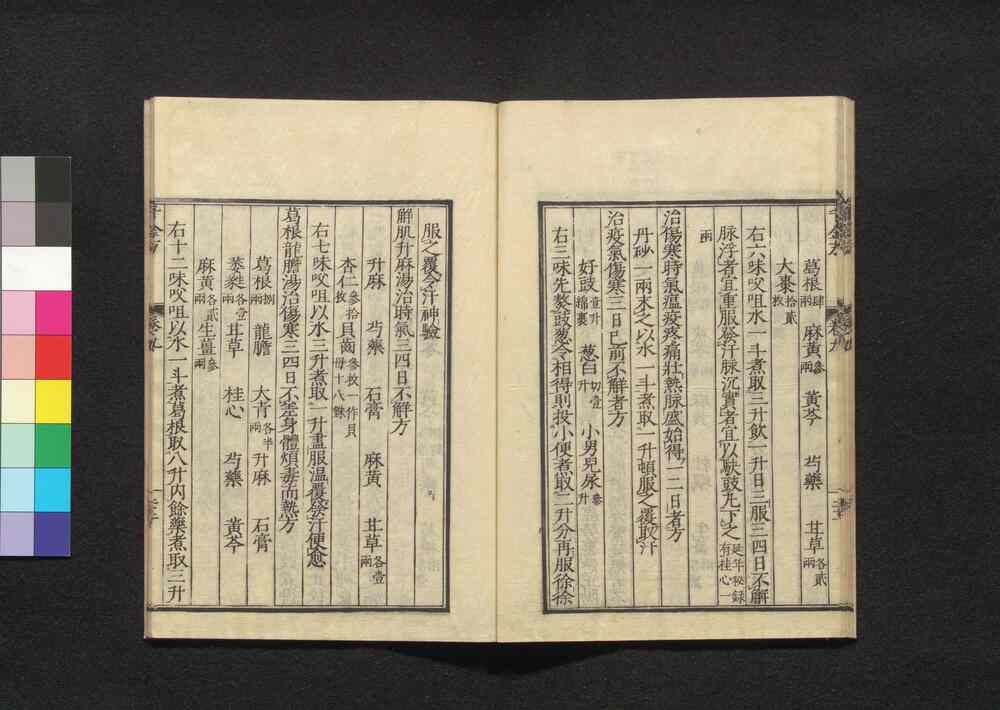 葛根肆兩 麻黃參兩 黃芩 芍藥 甘草各貳兩
大棗拾貳枚
右六味㕮咀以水一斗煮取三升飲一升日三服三四日不解
脉浮者宜重服發汗脉沉實者宜以駃豉丸下之延年祕録有桂心一
兩
治傷寒時氣瘟疫疼痛壯熱脉盛始得一二日者方
丹砂一兩末之以水一斗煮取一升頓服之覆取汗
治疫氣傷寒三日已前不解者方
好豉壹升綿裹 葱白切壹升 小男兒尿參升
右三味先熬豉葱令相得則投小便煮取二升分再服徐徐
服之覆令汗神驗
解肌升麻湯治時氣三四日不解方
升麻 芍藥 石膏 麻黃 甘草各壹兩
杏仁參拾枚 貝齒參枚一作貝母十八銖
右七味㕮咀以水三升煮取一升盡服温覆發汗便愈
葛根龍膽湯治傷寒三四日不差身體煩毒而熱方
葛根捌兩 龍膽 大青各半兩 升麻 石膏
葳蕤各壹兩 甘草 桂心 芍藥 黃芩
麻黃各貳兩 生薑參兩
右十二味㕮咀以水一斗煮葛根取八升内餘藥煮取三升